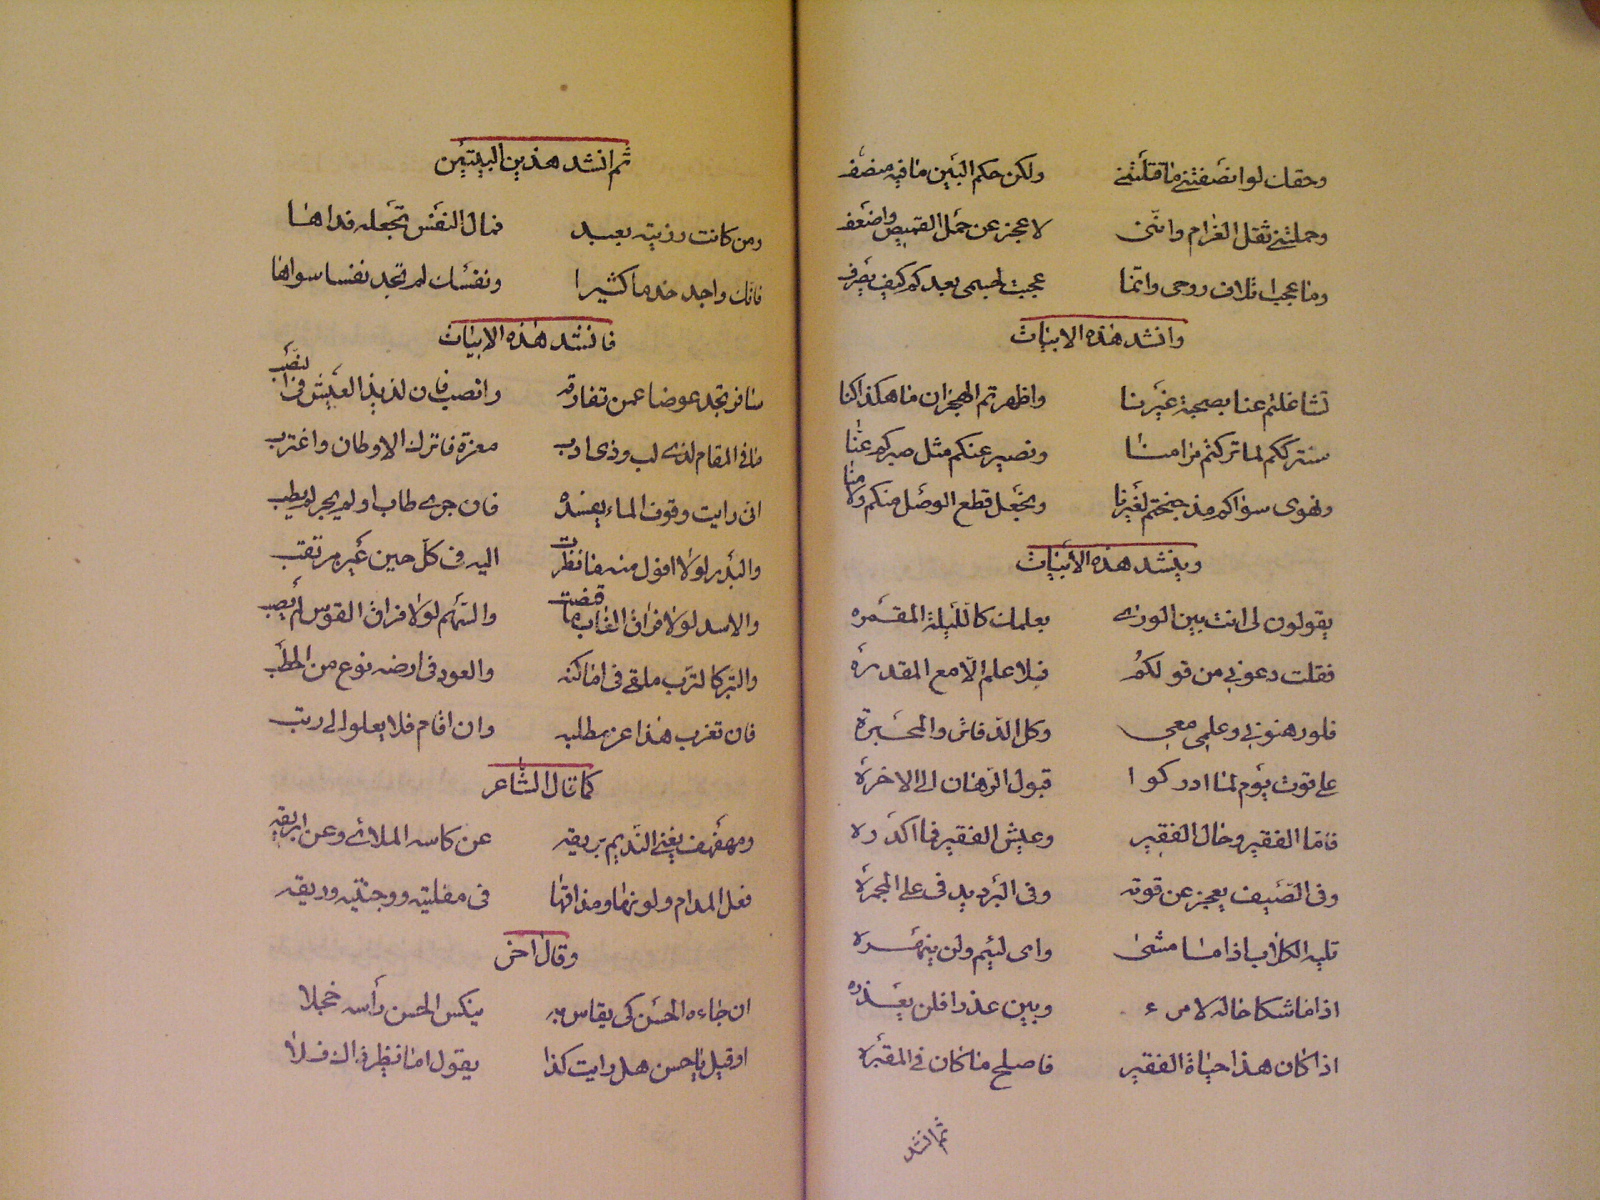 وحقك لو انصفتني ما قتلتني ولكن حكم البين ما فيه منصف
وحملتني ثقل الغرام وانني لا عجز عن حمل القميص واضعف
وما عجبا تلاف روحي وانما عجبت لجسمي بعدكم كيف يصرف
وانشد هذه الابيات
تشاغلتم عنا بصحبة غيرنا واظهرتم الهجران ما هكذا كنا
سنترككم لما تركتم مرامنا ونصبر عنكم مثل صبركم عنا
ونهوى سواكم مذ جنحتم لغيرنا ونجعل قطع الوصل منكم ولا منا
وينشد هذه الأبيات
يقولون لي انت بين الورى بعلمك كالليلة المقمره
فقلت دعوني من قولكم فلا علم الا مع المقدره
فلو رهنوني وعلمي معي وكل الدفاتر والمحبرة
على قوت يوم لما ادركوا قبول الرهان الى الاخره
فاما الفقير وحال الفقير وعيش الفقير فما اكدره
وفي الصيف يعجز عن قوته وفي البرد يدفى على المجمره
تليه الكلاب اذا ما مشى واى لئيم ولن ينهره
اذا ما شكا حاله لامرء وبين عذرا فلن يعذره
اذا كان هذا حياة الفقير فاصلح ما كان في المقبره
ثم انشد
ثم انشد هذين البيتين
ومن كانت رزيته بعبد فمال النفس تجعله فداها
فانك واجد خدما كثيرا ونفسك لم تجد نفسا سواها
فانشد هذه الابيات
سافر تجد عوضا عمن تفارقه وانصب فان لذيذ العيش في النصب
ما في المقام لذى لب وذى ادب معزة فاترك الاوطان واغترب
انى رايت وقوف الماء يفسده فان جرى طاب او لم يجر لم يطب
والبدر لولا افول منه ما نظرت اليه في كل حين عين مرتقب
والاسد لولا فراق الغاب ما قنصت والسهم لولا فراق القوس لم يصب
والتبر كالترب ملقى في اماكنه والعود في ارضه نوع من الحطب
فان تغرب هذا عز مطلبه وان اقام فلا يعلوا الى رتب
كما قال الشاعر
ومهفهف يغنى النديم بريقه عن كاسه الملائى وعن ابريقه
فعل المدام ولونها ومذاقها في مقلتيه ووجنتيه وريقه
وقال اخر
ان جاءه الحسن كى يقاس به ينكس الحسن رأسه خجلا
او قيل يا حسن هل رايت كذا يقول اما نظير ذلك فلا